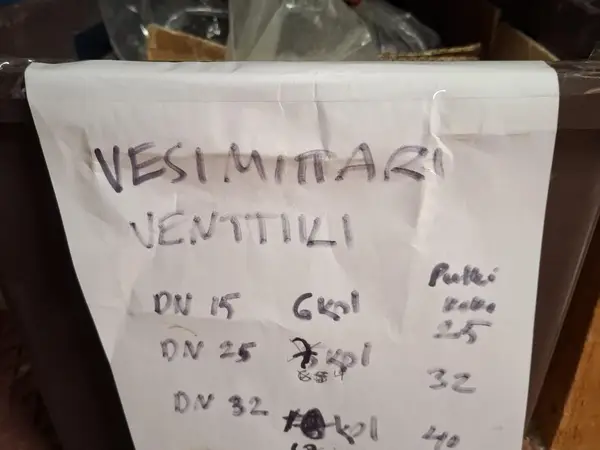 VESIMITTARI
VENTTIILI
Putki
koko
DN 15 6 kpl 25
DN 25 7 kpl 32
DN 32 kpl 40